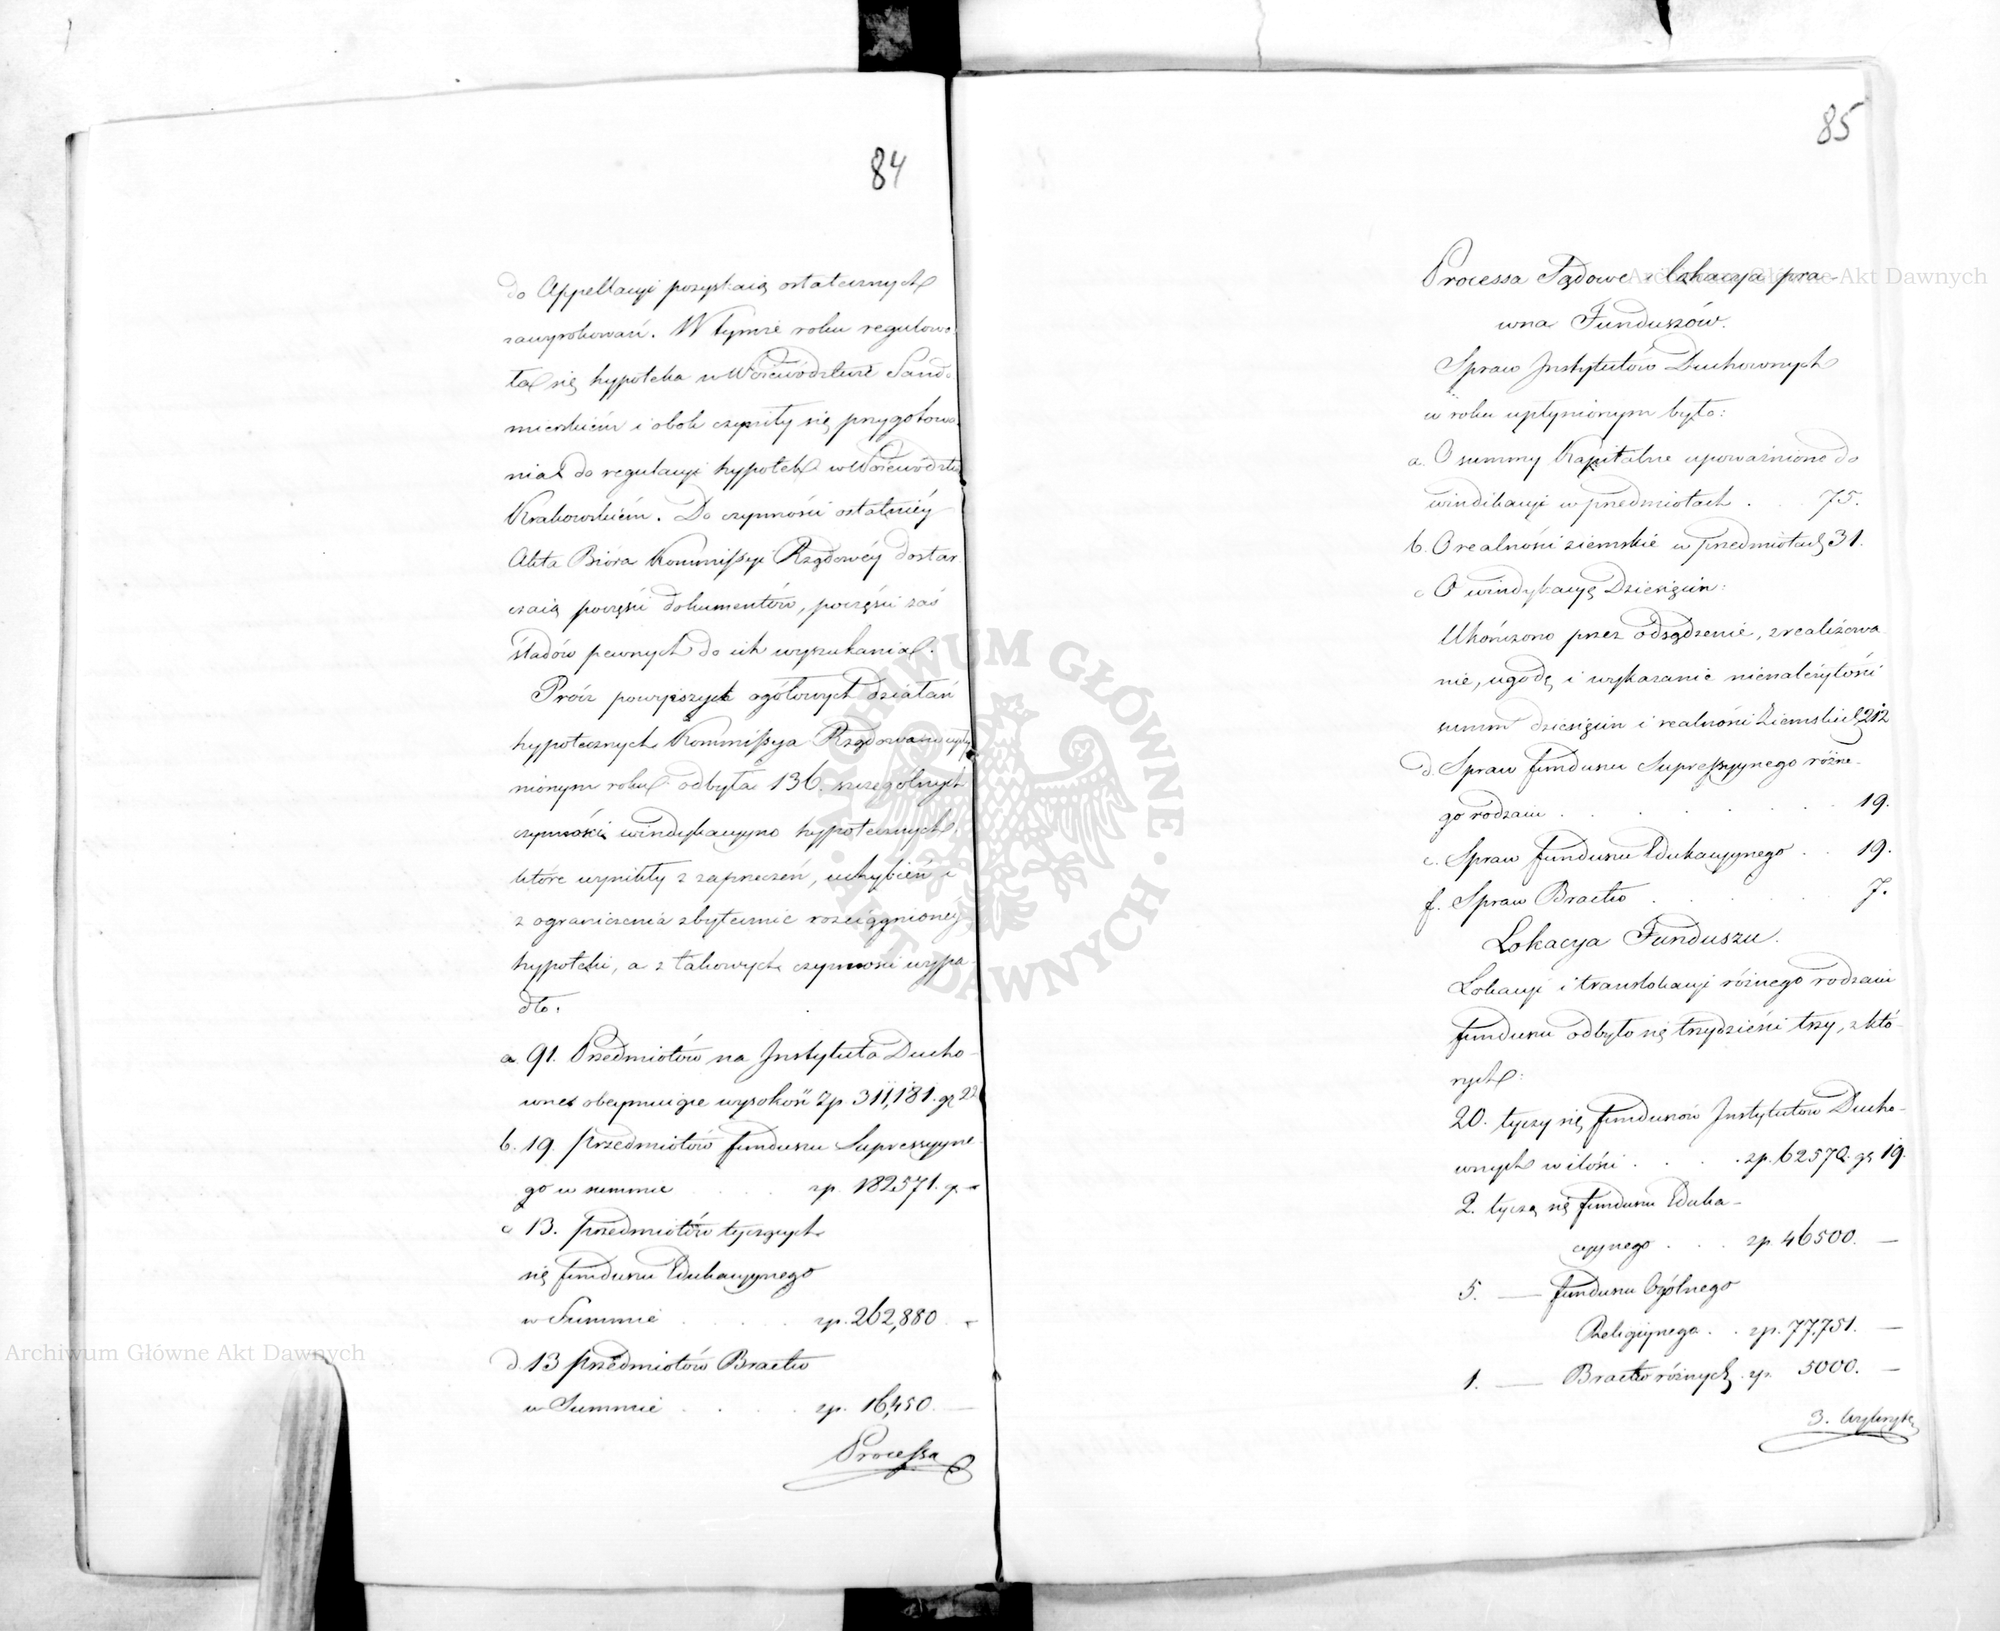 84
do Appellacyi pozyskaią ostatecznych
zawyrokowań. W tymże roku regulowa
ła się hypoteka w Woiewództwie Sando
mierskiém i obok czyniły się przygotowa
nia do regulacyi hypotek w Woiewództw
Krakowskiém. Do czynności ostatniéy
Akta Bióra Kommissyi Rządowéy dostar
czaią poczęści dokumentów, poczęści zaś
śladów pewnych do ich wyszukania.
Prócz powyższych ogółowych działań
hypotecznych Kommissya Rządowa w upły
nionym roku odbyła 136. szczególnych
czynności windykacyyno hypotecznych,
które wynikły z zaprzeczeń, uchybień i
z ograniczenia zbytecznie rozciągnioney
hypoteki, a z takowych czynności wypa
dło.
a 91. Przedmiotów na Instytuta Ducho-
wne obeymuiące wysokość Zp 311,181. gr 22
b. 19. przedmiotów funduszu Supressyyne-
go w summie . . . zp. 182,571. gr -
c 13. przedmiotów tyczących
się funduszu Edukacyynego
w Summie . . . . zp. 262,880. -
d. 13 przedmiotów Bractw
w Summie . . . . zp. 16,450. —
Processa
85
Processa Sądowe i lokacya pra-
wna Funduszów.
Spraw Instytutów Duchownych
w roku upłynionym było:
a. O summy Kapitalne upoważniono do
windikacyi w przedmiotach . . 75.
b. O realności ziemskie w przedmiotach 31.
c O windykacyę Dziesięcin:
Ukończono przez odsądzenie, zrealizowa
nie, ugodę i wykazanie nienależytości
summ dziesięcin i realności Ziemskich 212
d. Spraw funduszu Supressyynego różne-
go rodzaiu . . . . . . 19.
e. Spraw funduszu Edukacyynego . . 19.
f. Spraw Bractw . . . . . 7.
Lokacya Funduszu.
Lokacyi i translokacyi różnego rodzaiu
funduszu odbyło się trzydzieści trzy, z któ-
rych:
20. tyczy się funduszów Instytutów Ducho-
wnych w ilości . . . . zp. 62570. gr 19.
2. tyczą się funduszu Eduka-
cyynego . . . zp. 46500. —
5. — funduszu Ogólnego
Religiynego . . zp. 77,751. —
1. — Bractw różnych . zp. 5000. —
3.
Archiwum Główne Akt Dawnych
Archiwum Główne Akt Dawnych
ARCHIWUM GŁÓWNE · AKT DAWNYCH ·